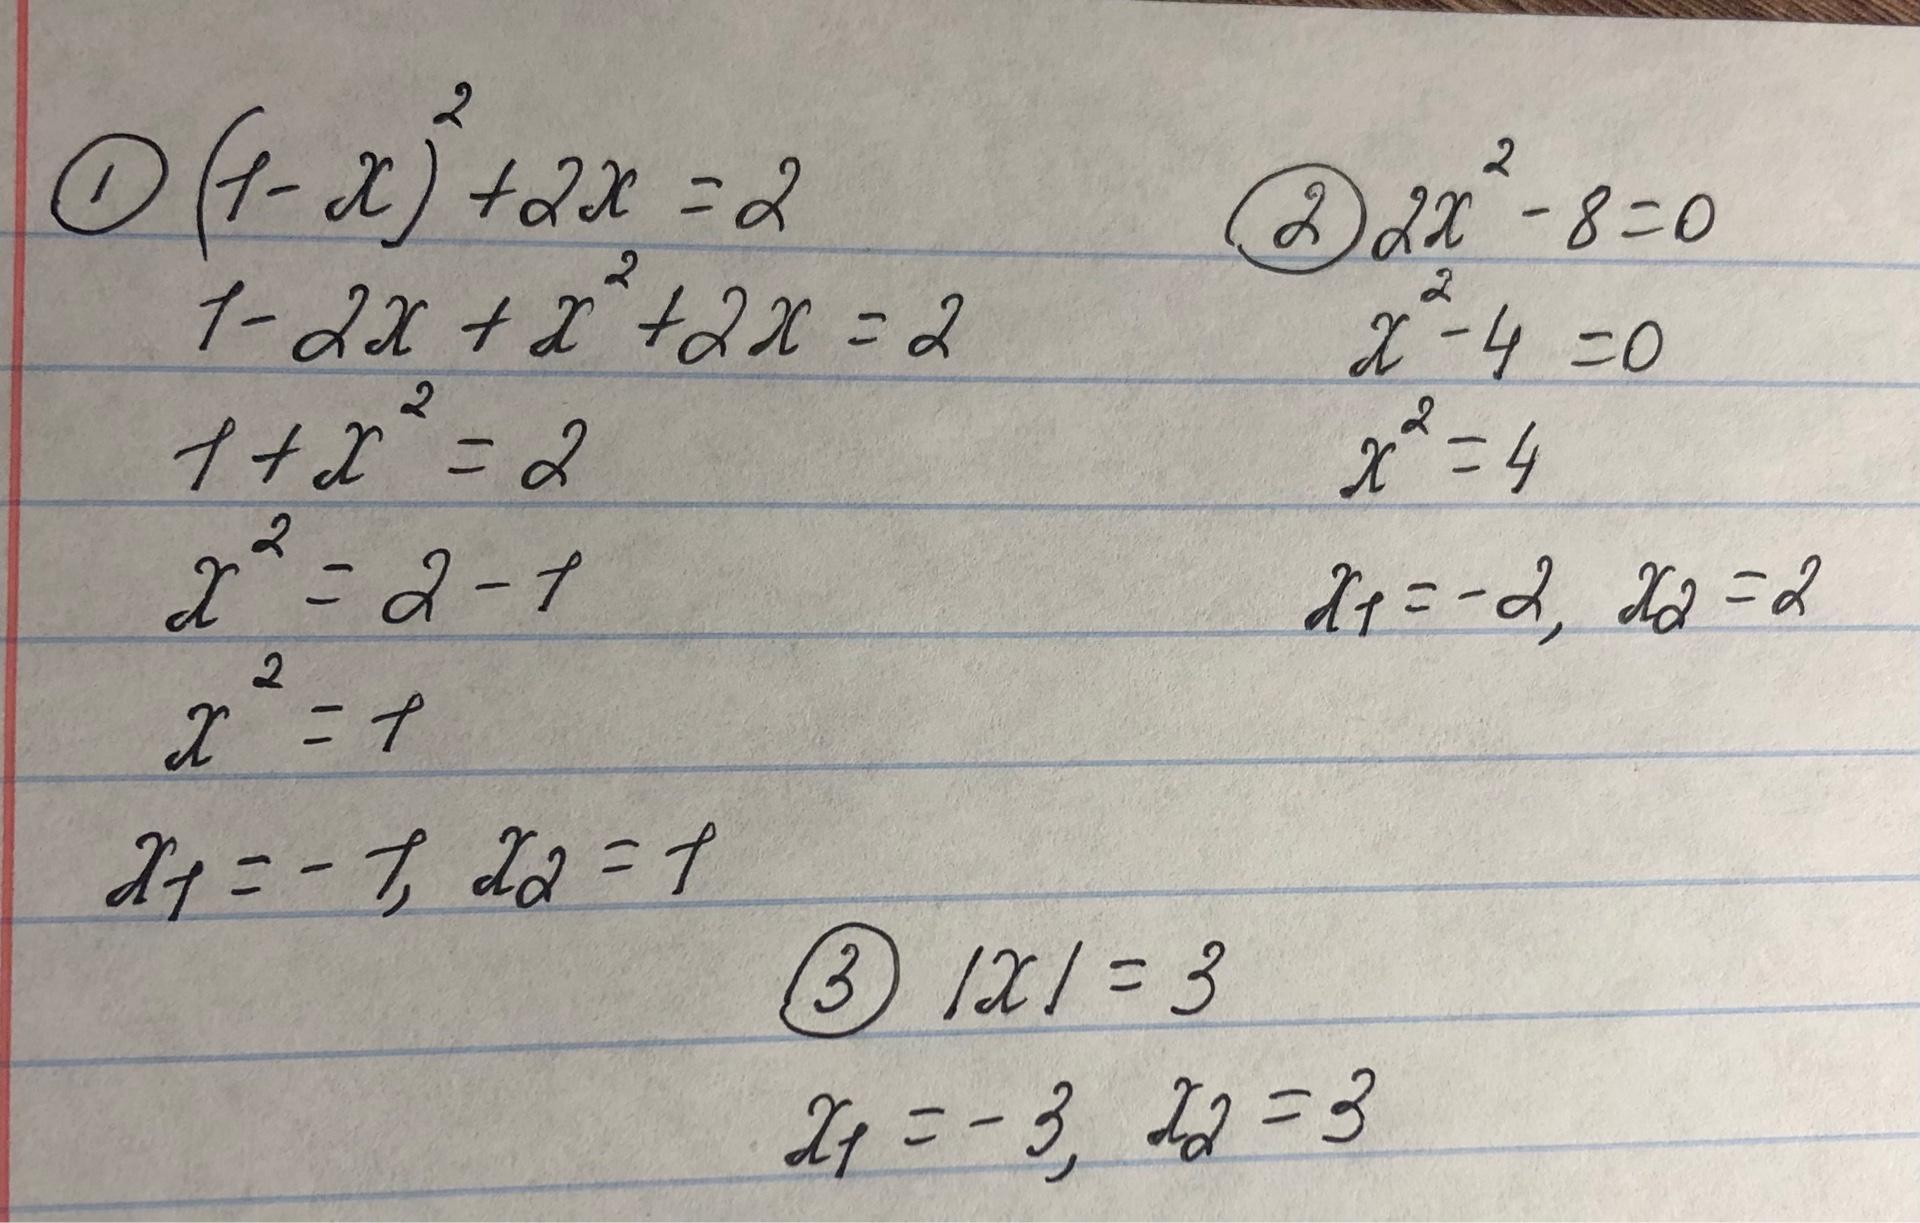 ① (1-x)² + 2x = 2
1 - 2x + x² + 2x = 2
1 + x² = 2
x² = 2 - 1
x² = 1
x₁ = -1, x₂ = 1
② 2x² - 8 = 0
x² - 4 = 0
x² = 4
x₁ = -2, x₂ = 2
③ |x| = 3
x₁ = -3, x₂ = 3